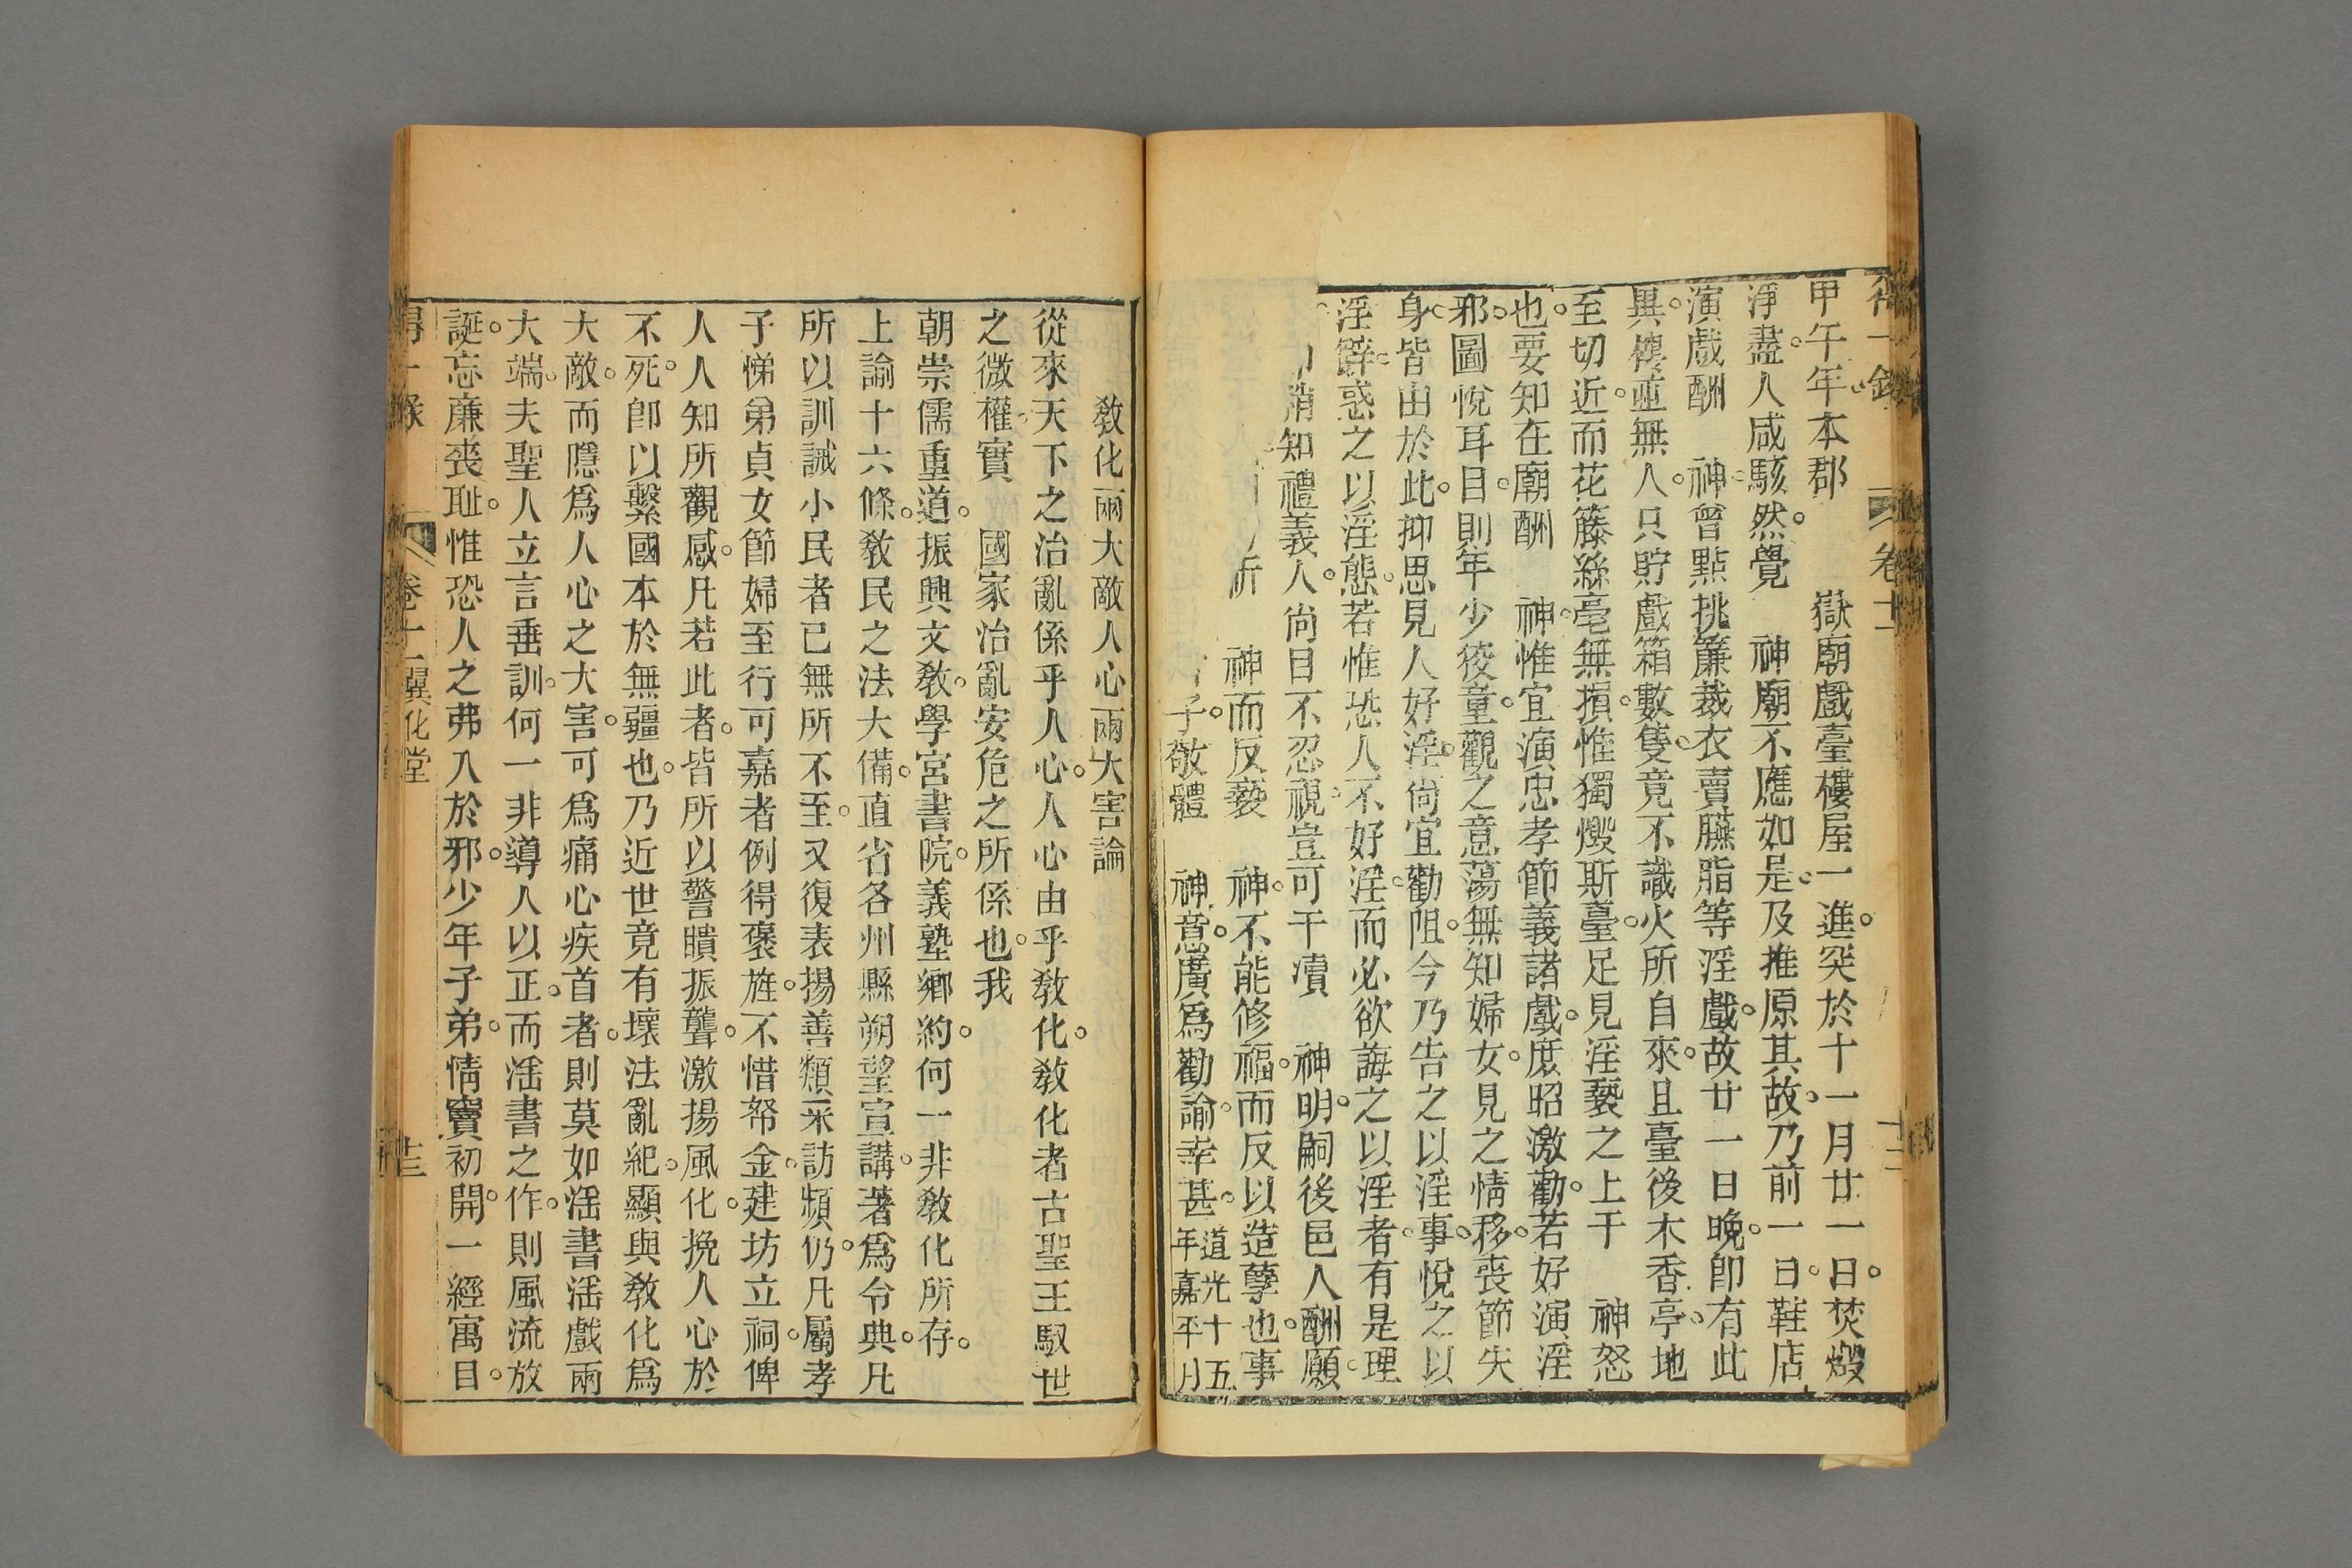 甲午年。本郡　　嶽廟戲臺樓屋一進。突於十一月廿一日。焚燬
淨盡。人咸駭然。覺　神廟不應如是。及推原其故。乃前一日。鞋店
演戲酬　神。曾點挑簾裁衣賣臙脂等淫戲。故廿一日晚。卽有此
異。樓並無人。只貯戲箱數隻。竟不識火所自來。且臺後木香亭。地
至切近。而花籐絲毫無損。惟獨燬斯臺。足見淫褻之上干　神怒
也。要知在廟酬　神。惟宜演忠孝節義諸戲。庶昭激勸。若好演淫
邪。圖悅耳目。則年少狡童。觀之意蕩。無知婦女。見之情移。喪節失
身。皆由於此。抑思見人好淫。尙宜勸阻。今乃告之以淫事。悅之以
淫辭。惑之以淫態。若惟恐人不好淫。而必欲誨之以淫者。有是理
稍知禮義人。尙目不忍視。豈可干凟　神明。嗣後邑人酬願。
祈　神而反褻　神。不能修福。而反以造孽也。事
子。敬體　神意。廣爲勸諭。幸甚。道光十五年嘉平月
得一錄　卷十一
教化兩大敵人心兩大害論
從來天下之治亂係乎人心。人心由乎教化。教化者古聖王馭世
之微權。實　國家治亂安危之所係也。我
朝崇儒重道。振興文教。學宮書院。義塾鄉約。何一非教化所存。
上諭十六條。教民之法大備。直省各州縣朔望宣講。著爲令典。凡
所以訓誡小民者已無所不至。又復表揚善類采訪頻仍。凡屬孝
子悌弟貞女節婦至行可嘉者例得褒旌。不惜帑金。建坊立祠。俾
人人知所觀感。凡若此者。皆所以警瞶振聾。激揚風化。挽人心於
不死。卽以繫國本於無疆也。乃近世竟有壞法亂紀。顯與教化爲
大敵。而隱爲人心之大害。可爲痛心疾首者。則莫如淫書淫戲兩
大端。夫聖人立言垂訓。何一非導人以正。而淫書之作。則風流放
誕。忘廉喪恥。惟恐人之弗入於邪。少年子弟。情竇初開。一經寓目。
得一錄　卷十一　翼化堂　十三